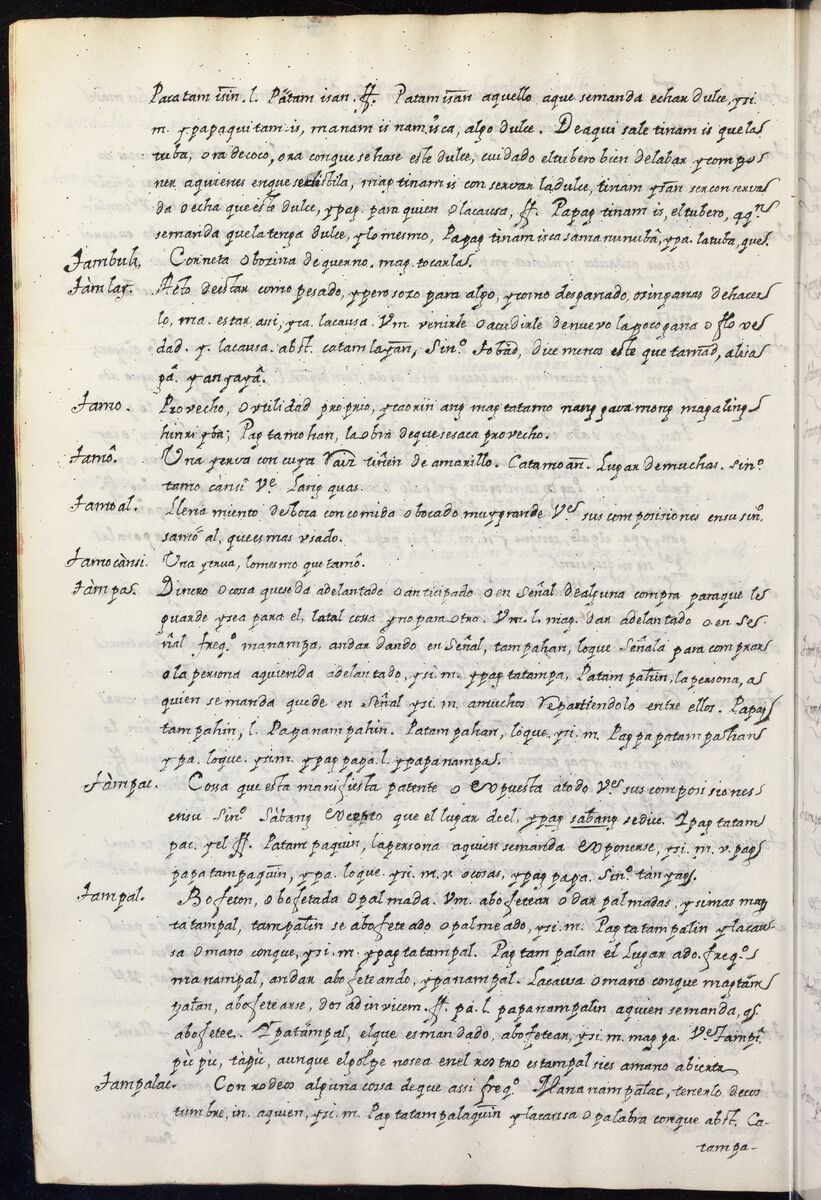 Pacatam isin. l. Patam isan. ff. Patamisan aquello aque semanda echar dulce, ysi.
m. ypapaquitam is, manam is namisca, algo dulce. Deaqui sale tinam is quelas
tuba, ora de coco, ora conque se hase este dulce, cuidado eltubero bien delabar ycompo
ner aquienes enque sedistila, mag tinam is conservar ladulce, tinam ysan ser conserva
da o echa que este dulce, ypag. para quien o lacausa, ff. Papag tinam is, el tubero, qqn
semanda quelatenga dulce, ylo mesmo, Papag tinam isca sa manunubâ, ypa. latuba, que.
Tambuli. Corneta o bozina de querno. mag. tocarlas.
Tàmlay. Acto de estar como pesado, yperosozo para algo, ycomo desganado, osinganas dehacer
lo, ma. estar assi, yca. lacausa. Vm. venirle o acudirle denuevo lapocagana o floxe
dad. y. lacausa. abst. catamlayan, Sino. tobad, dice menos este que tamad, alisa
pâ. yangayâ.
Tamo. Provecho, o vtilidad proprio, ycaorin ang mag tatamo nang gava mong magaling
hinri yba; Pag tamohan, la obra deque sesaca provecho.
Tamô. Una yerva con cuya raiz tiñen de amarillo. Catamoan. Lugar de muchas. Sino.
tamo cànsi Ve. Lang quas.
Tamoal. Llena miento desboca con comida o bocado muy grande Ve. sus composisiones ensu sino.
samoal, que es mas vsado.
Tamocànsi. Una yerva, lomesmo que tamô.
Tàmpa. Dinero o cossa que seda adelantado o anticipado o en señal dealguna compra paraque le
guarde ysea para el, latal cossa yno para otro. Vm. l. mag. dar adelantado o en se
ñal freqo. manampa, andar dando en señal, tampahan, loque señala para comprar
o la persona aquienda adelantado, ysi. m. ypag tatampa, Patam pahin, la persona, a
quien semanda quede en señal ysi. m. amuchos repartiendolo entre ellos. Papag
tam pahin, l. Papanam pahin. Patam pahan, loque. ysi. m. Pag papatam pashan
ypa. loque. ysi m. ypag papa. l. ypapanampa.
Tàmpac. Cossa que esta manifiesta patente o expuesta atodo Ve. sus composisiones
ensu sino. sabang excepto que el lugar deel, ypag sabang sedice. Ypag tatam
pac. yel ff. Patam paquin, la persona aquien semanda exponerse, ysi. m. v. pag
papa tampaquin, ypa. loque. ysi. m. v. o cosas, ypag papa. sino. tanyag.
Tampal. Bofeton, o bofetada o palmada. Vm. abofetear o dar palmadas, ysi mas mag
tatampal, tampalin se abofeteado o palmeado, ysi. m. Pag tatampalin ylacau
sa o mano conque, ysi. m. ypag tatampal. Pag tam palan el lugar ado. freqo.
manampal, andar abofeteando, ypanampal. Lacausa o mano conque magtam
palan, abofetearse, dos ad in vicem. ff. pa. l. papanampalin aquien semanda, q.
abofetee. Ypatampal, elque es mandado, abofetear, ysi. m. mag pa. Ve. Tampi,
pù pù, tàpù, aunque el golpe no sea en el rostro es tampal si es amano abierta.
Tampalac. Con rodeo alguna cossa deque assi freqo. Nananampalac, tenerlo decos
tumbre, in. aquien, ysi. m. Pag tatampalaquin ylacausa o palabra conque abst. Ca-
tampa-